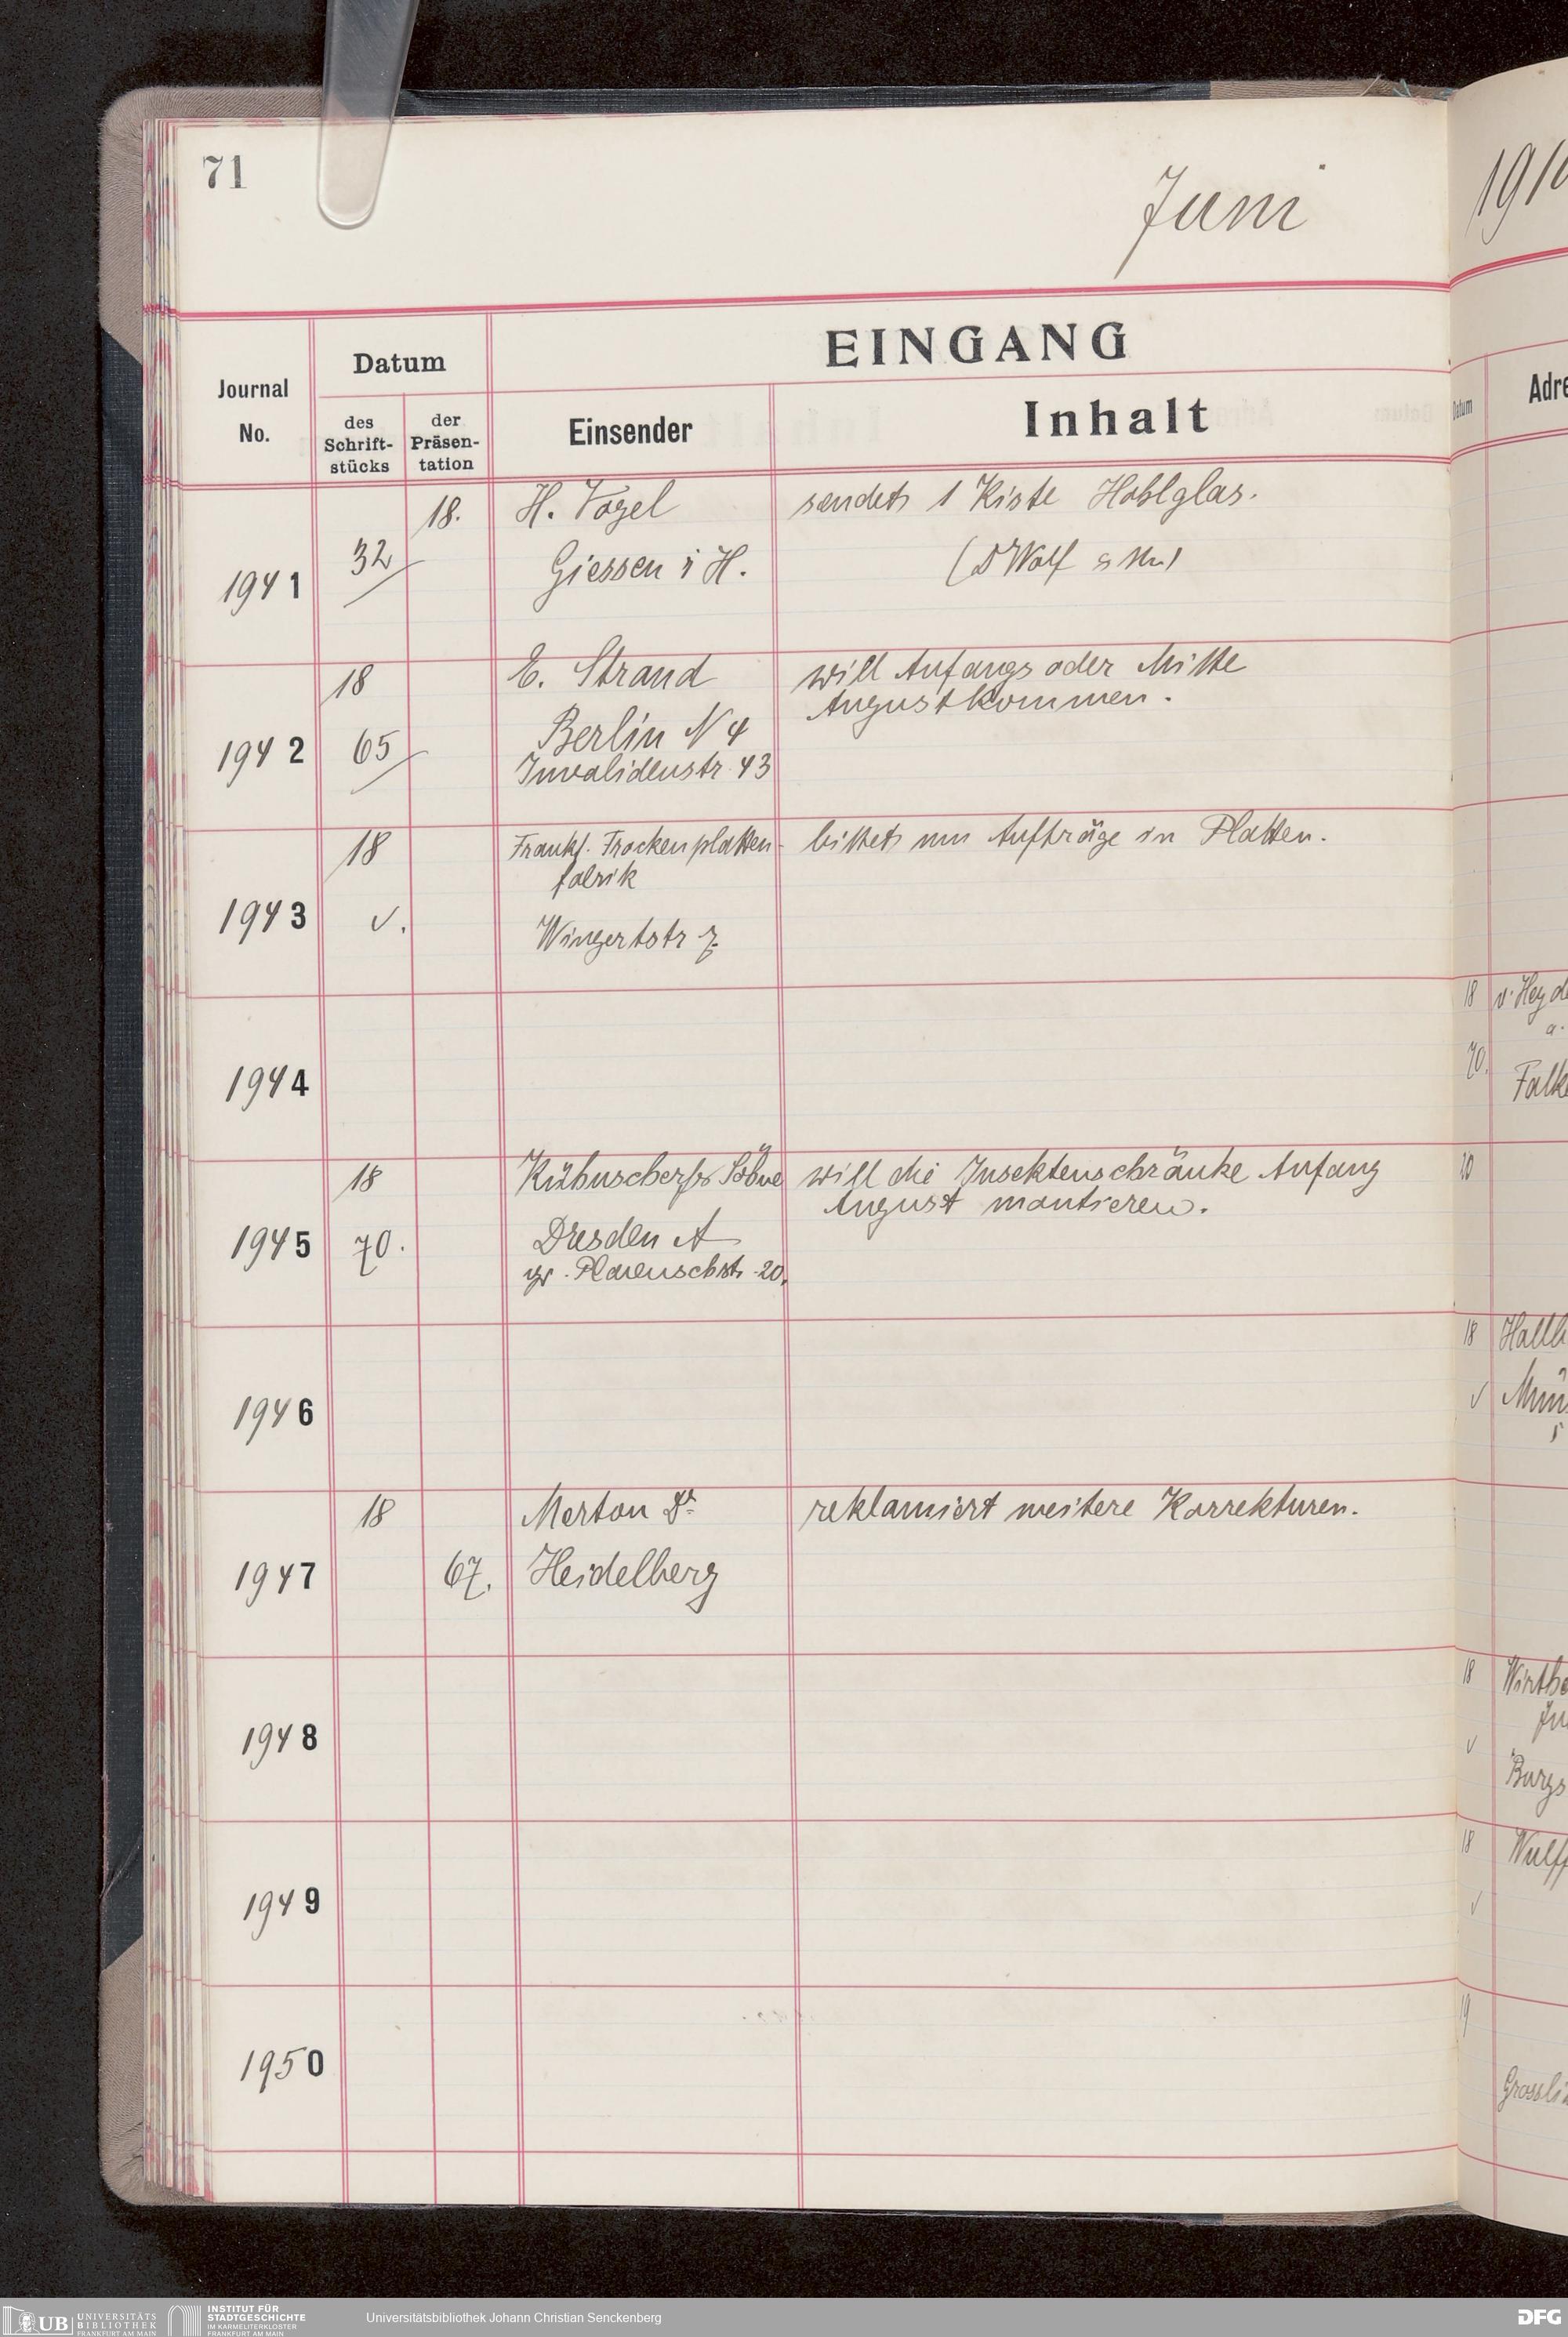 71
Juni
1910
EINGANG
Journal
No.
Datum
des
Schrift-
stücks
der
Präsen-
tation
Einsender
Inhalt
Datum
Adre
1941
32
18.
H. Vogel
Giessen i H.
sendet 1 Kiste Hohlglas.
1942
18
65
E. Strand
Berlin N 4
Invalidenstr. 43
will Anfangs oder Mitte
August kommen.
1943
18
v.
Frankf. Trockenplatten-
fabrik
Wingertstr 7.
bittet um Aufträge in Platten.
1944
18 v. Heyd
a.
70.
Falk
1945
18
70.
Kühnscherfs Söhne
Dresden A
gr. Plauenschstr. 20.
will die Insektenschränke Anfang
August montieren.
1946
18
v
1947
18
67.
Merton Dr.
Heidelberg
reklamiert weitere Korrekturen.
1948
18
v
1949
18 Wulff
v
1950
19
UB
UNIVERSITÄTS
BIBLIOTHEK
FRANKFURT AM MAIN
INSTITUT FÜR
STADTGESCHICHTE
IM KARMELITERKLOSTER
FRANKFURT AM MAIN
Universitätsbibliothek Johann Christian Senckenberg
DFG